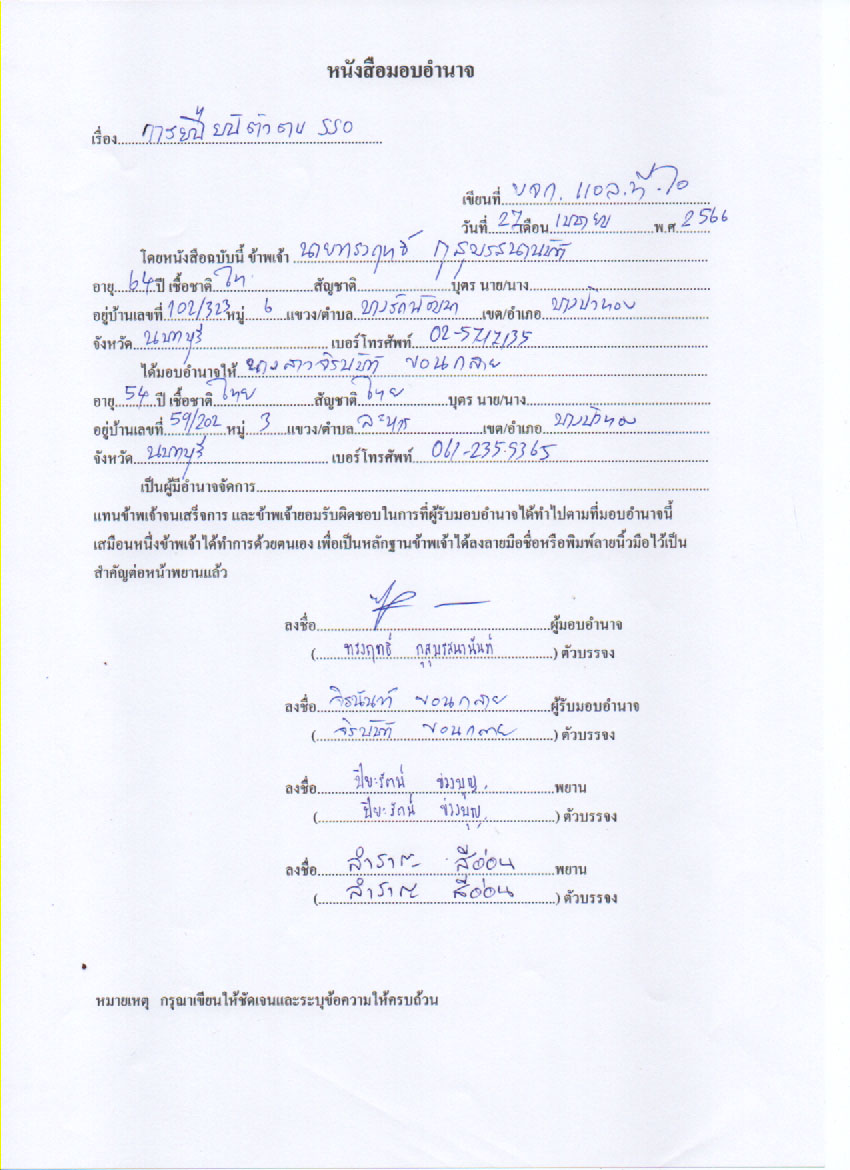 หนังสือมอบอำนาจ
เรื่อง การยืนยันตัวตน SSO
เขียนที่ บจก. แอล.ที.ไอ
วันที่ 27 เดือน เมษายน พ.ศ. 2566
โดยหนังสือฉบับนี้ ข้าพเจ้า นายทรงฤทธิ์ กุสุมรสนานันท์
อายุ 64 ปี เชื้อชาติ ไทย สัญชาติ บุตร นาย/นาง
อยู่บ้านเลขที่ 102/323 หมู่ 6 แขวง/ตำบล บางรักพัฒนา เขต/อำเภอ บางบัวทอง
จังหวัด นนทบุรี เบอร์โทรศัพท์ 02-5717135
ได้มอบอำนาจให้ นางสาวจิรนันท์ ขอนกลาย
อายุ 54 ปี เชื้อชาติ ไทย สัญชาติ ไทย บุตร นาย/นาง
อยู่บ้านเลขที่ 59/202 หมู่ 3 แขวง/ตำบล ละหาร เขต/อำเภอ บางบัวทอง
จังหวัด นนทบุรี เบอร์โทรศัพท์ 061-235-5365
เป็นผู้มีอำนาจจัดการ
แทนข้าพเจ้าจนเสร็จการ และข้าพเจ้ายอมรับผิดชอบในการที่ผู้รับมอบอำนาจได้ทำไปตามที่มอบอำนาจนี้
เสมือนหนึ่งข้าพเจ้าได้ทำการด้วยตนเอง เพื่อเป็นหลักฐานข้าพเจ้าได้ลงลายมือชื่อหรือพิมพ์ลายนิ้วมือไว้เป็น
สำคัญต่อหน้าพยานแล้ว
ลงชื่อ ผู้มอบอำนาจ
( ทรงฤทธิ์ กุสุมรสนานันท์ ) ตัวบรรจง
ลงชื่อ จิรนันท์ ขอนกลาย ผู้รับมอบอำนาจ
( จิรนันท์ ขอนกลาย ) ตัวบรรจง
ลงชื่อ ปิยะรัตน์ ช่วงบุญ พยาน
( ปิยะรัตน์ ช่วงบุญ ) ตัวบรรจง
ลงชื่อ สำราญ สีอ่อน พยาน
( สำราญ สีอ่อน ) ตัวบรรจง
หมายเหตุ กรุณาเขียนให้ชัดเจนและระบุข้อความให้ครบถ้วน